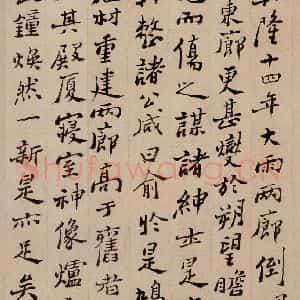 隆十四年大雨兩廊倒
東廊更甚變於朔望瞻
而傷之謀諸紳士是
整諸公咸曰俞於是
材重建兩廊高于舊者
其殿廈寢室神像爐
鐘煥然一新是亦足矣